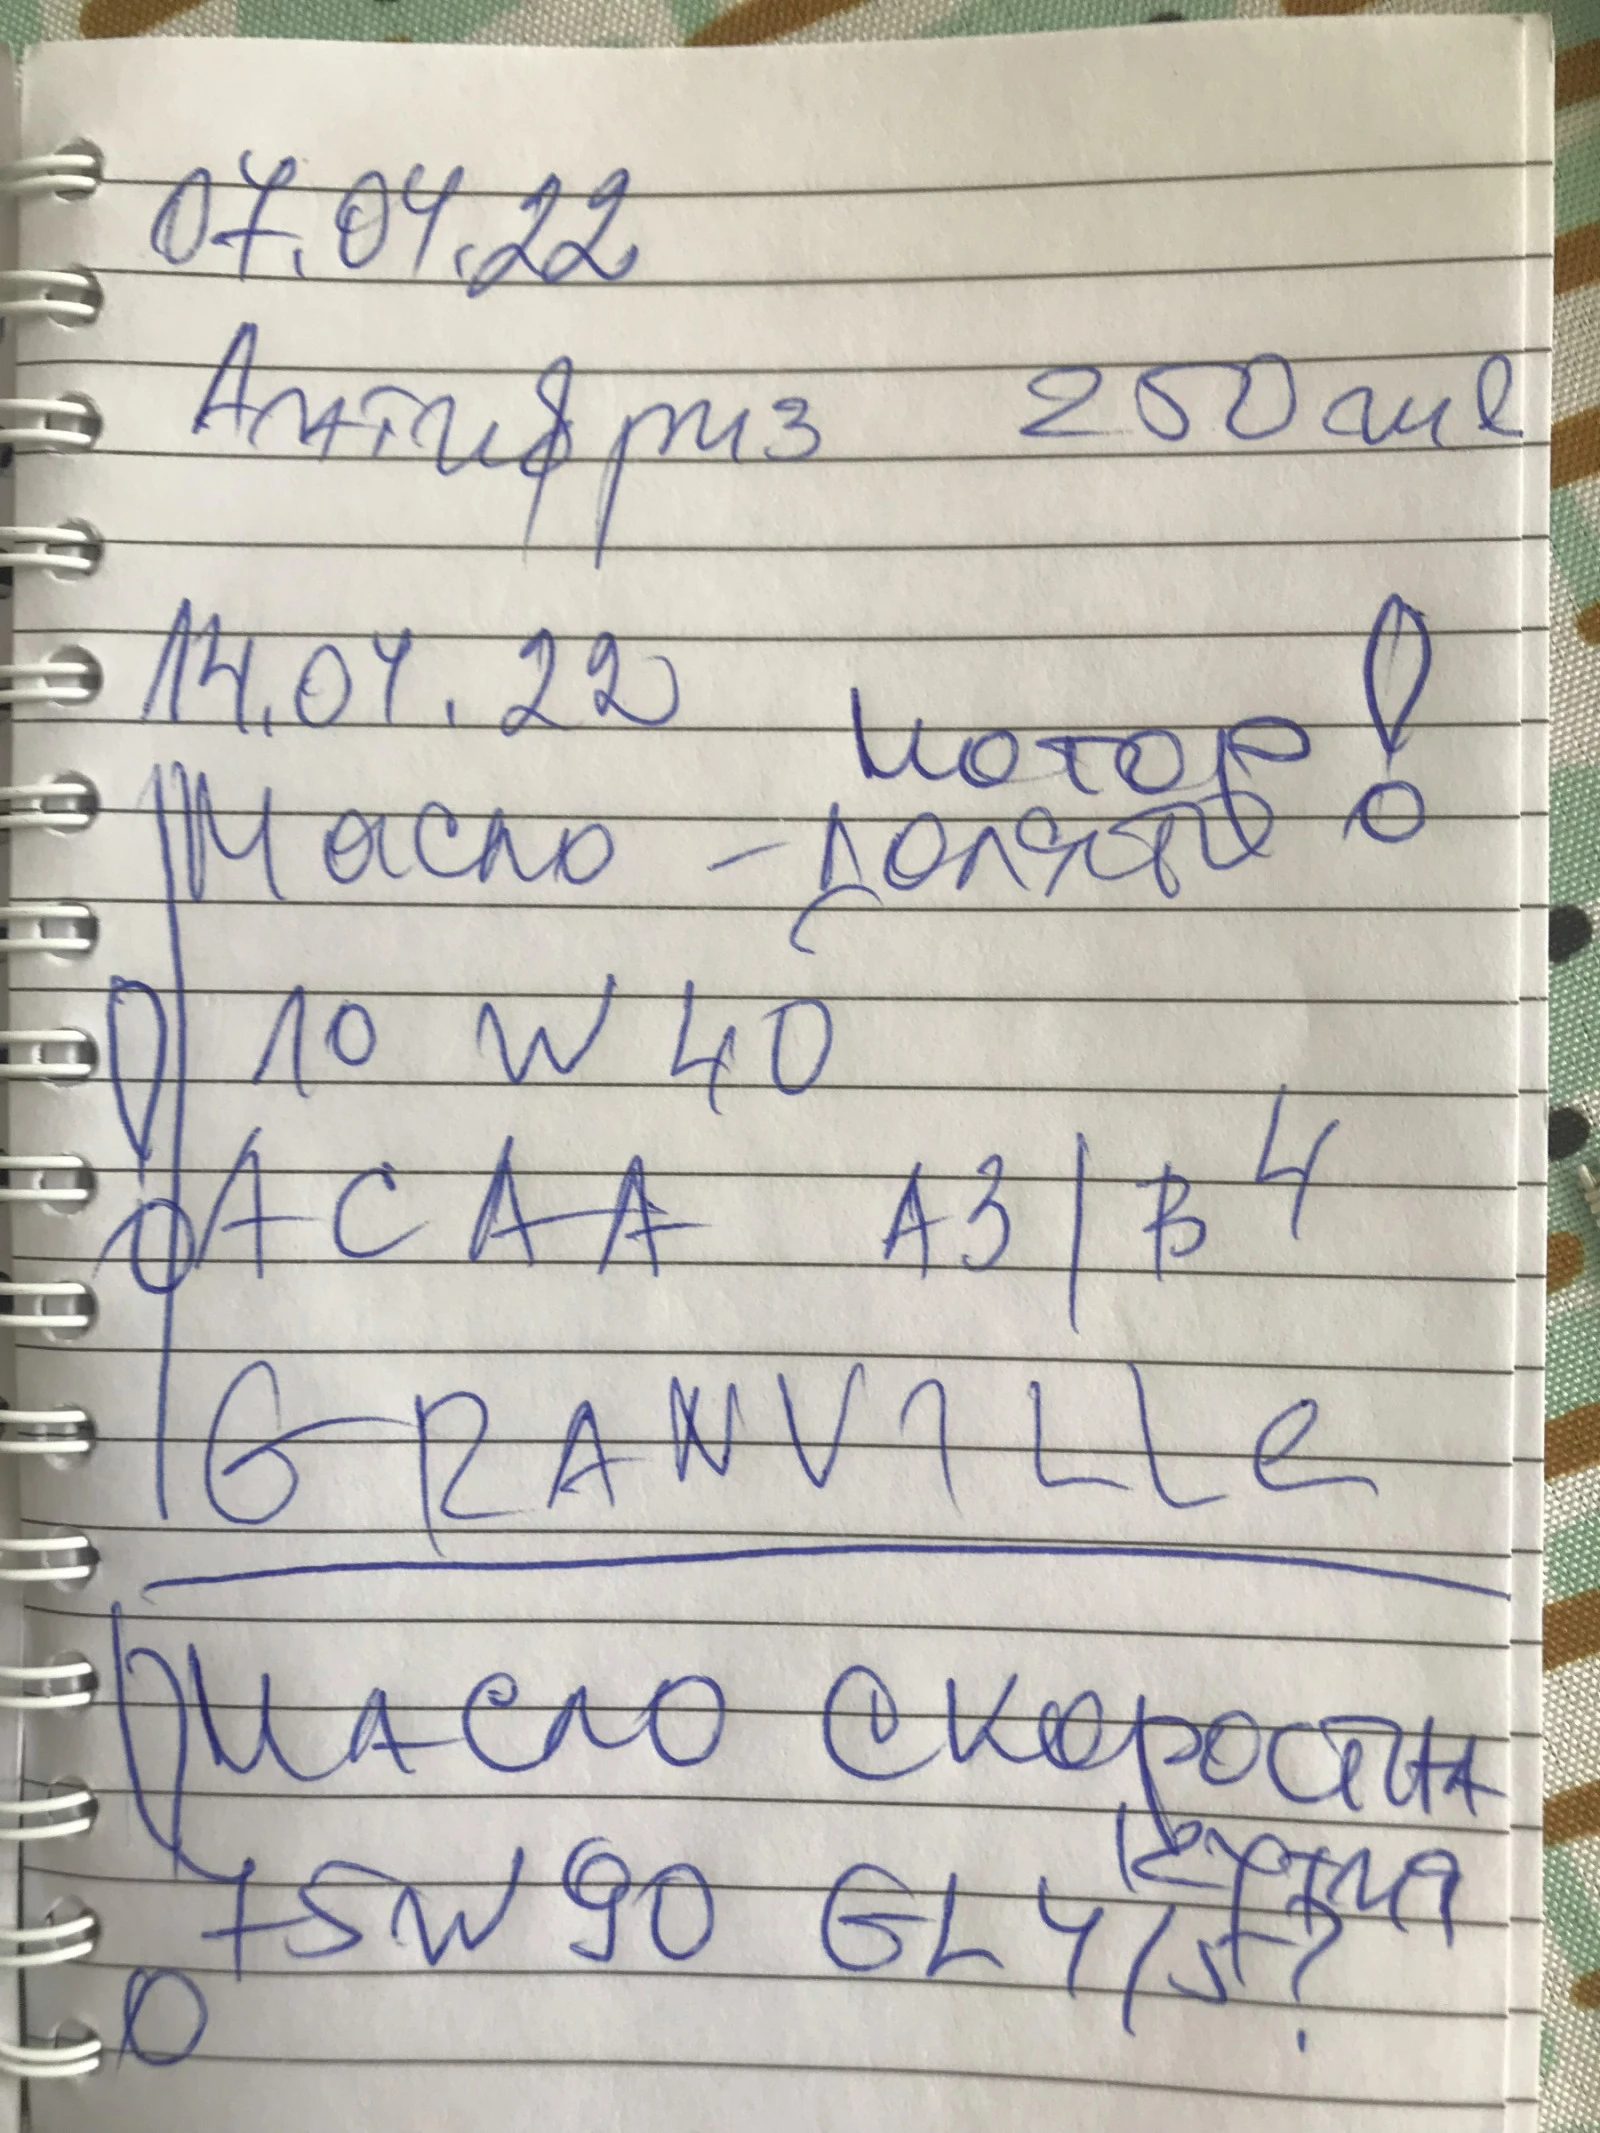 07.04.22
Антифриз 250 мл
14.04.22
мотор !
Масло - долять
10 W 40
ACAA A3/B4
GRANVILLe
Масло скоростн
75W90 GL4/5?